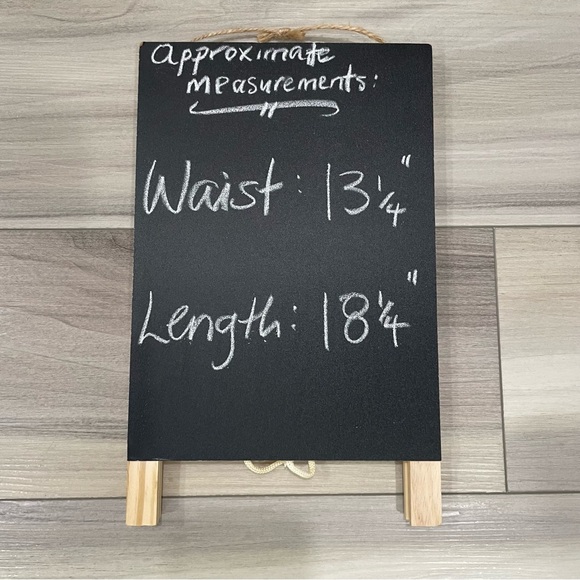 Approximate
measurements:
Waist: 13 1/4"
Length: 18 1/4"